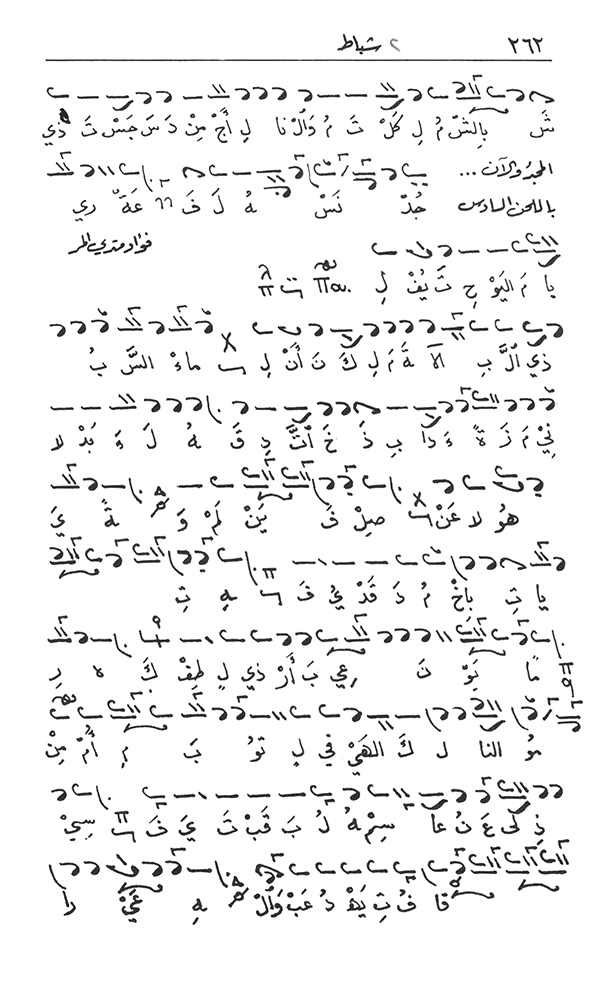 ٢٦٢ ٢ شباط
شَ بِالبَشْ مُ لِ كُلْ تَ مُ وَالْ نا لِ أَجْ مِنْ دَ سَ جَسْ تَ ذي
المجد والآن ...
باللحن السادس جُدْ نَسْ هُ لَ فَ عَةَ ري
فؤاد متري المر
با مَ اليَوْ حِ تَ يُفْ لِ
ذي الَّ بِ الآ ةَ مَ لِ كَ نَ أَنْ لِ ماءْ السَّ بُ
نِيْ مَ زَ ةً ءَ دا بِ ذَ خَ اتَّ دِ قَ هُ لَ ءَ بَدْ لا
هُو لا عَنْ صِلْ فَ يَنْ لَمْ وَ ةً يَ
يا تِ باخْ مُ دَ قَدْ يُ فَ هِ تِ
ماً يَوْ نَ عِي بَ أَرْ ذي لِ طِفْ كَ هِ رِ
مُو النا لَ كَ الهَيْ في لِ تو بَ مِ أُمْ مِنْ
ذِ لى عَ نُ عا سِمْ هُ لُ بَ قَبْ تَ يَ فَ سِيْ
قا فُ تِ يَهْ دُ عَبْ وَالْ هِ عَيْ را